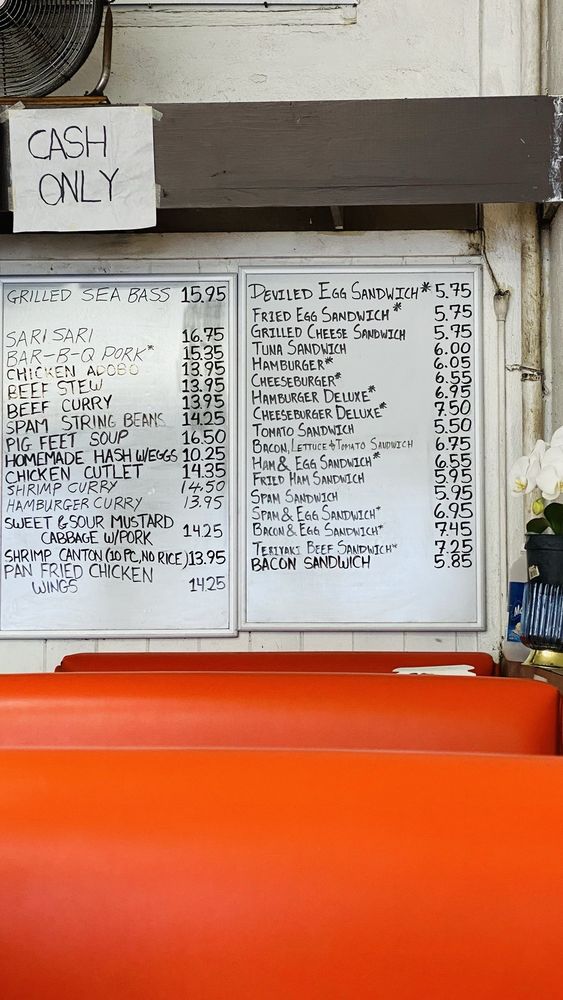 CASH
ONLY
GRILLED SEA BASS 15.95
SARI SARI 16.75
BAR-B-Q PORK* 15.35
CHICKEN ADOBO 13.95
BEEF STEW 13.95
BEEF CURRY 13.95
SPAM STRING BEANS 14.25
PIG FEET SOUP 16.50
HOMEMADE HASH W/EGGS 10.25
CHICKEN CUTLET 14.35
SHRIMP CURRY 14.50
HAMBURGER CURRY 13.95
SWEET & SOUR MUSTARD
CABBAGE W/PORK 14.25
SHRIMP CANTON (10 PC, NO RICE) 13.95
PAN FRIED CHICKEN
WINGS 14.25
DEVILED EGG SANDWICH* 5.75
FRIED EGG SANDWICH* 5.75
GRILLED CHEESE SANDWICH 5.75
TUNA SANDWICH 6.00
HAMBURGER* 6.05
CHEESEBURGER* 6.55
HAMBURGER DELUXE* 6.95
CHEESEBURGER DELUXE* 7.50
TOMATO SANDWICH 5.50
BACON, LETTUCE & TOMATO SANDWICH 6.75
HAM & EGG SANDWICH* 6.55
FRIED HAM SANDWICH 5.95
SPAM SANDWICH 5.95
SPAM & EGG SANDWICH* 6.95
BACON & EGG SANDWICH* 7.45
TERIYAKI BEEF SANDWICH* 7.25
BACON SANDWICH 5.85